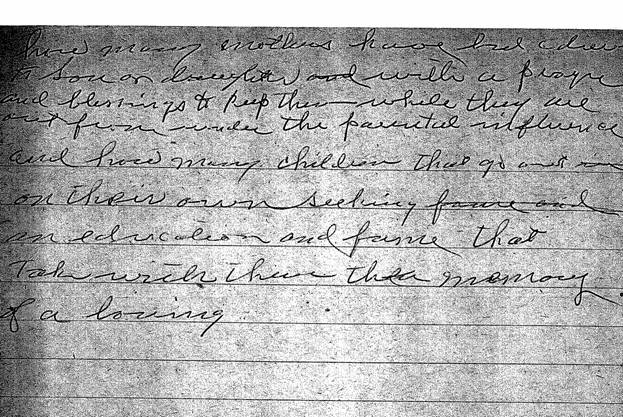 how many mothers have bid adieu
to son or daughter and with a prayer
and blessings to keep them while they are
out from under the parental influence
and how many children that go out
on their own seeking fame and
an education and fame that
Take with them the memory
of a loving